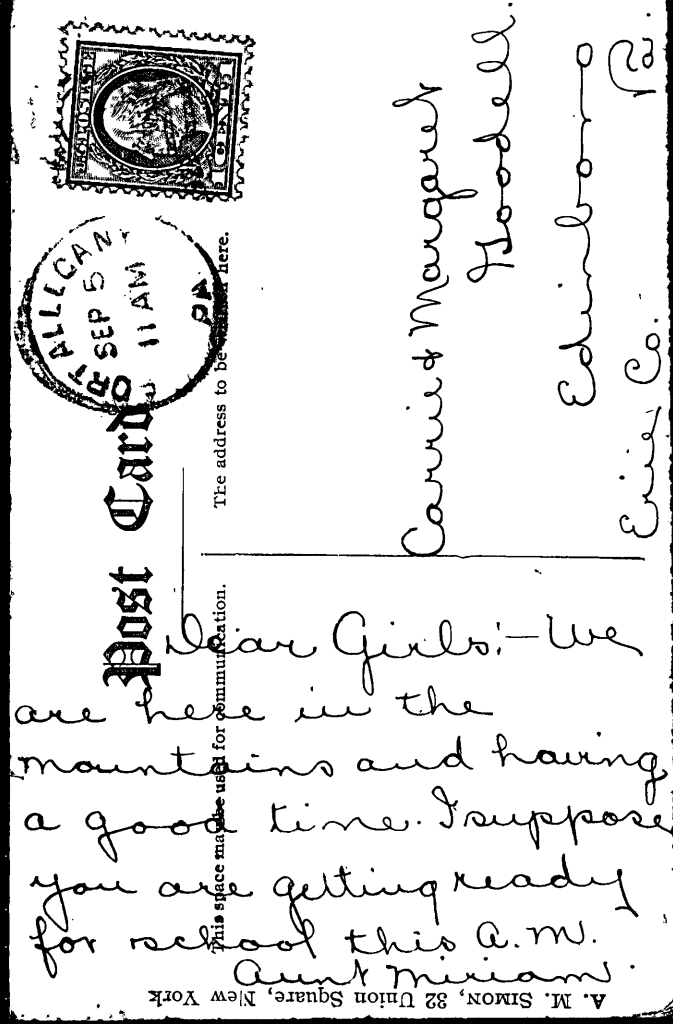 U.S. POSTAGE
1 CENT 1
ORT ALLEGANY
SEP 5
11 AM
PA
Post Card
The address to be written here.
This space may be used for communication.
Carrie & Margaret
Goodell.
Edinboro
Erie Co. Pa.
Dear Girls:— We
are here in the
mountains and having
a good time. I suppose
you are getting ready
for school this A.M.
Aunt Miriam.
A. M. SIMON, 32 Union Square, New York